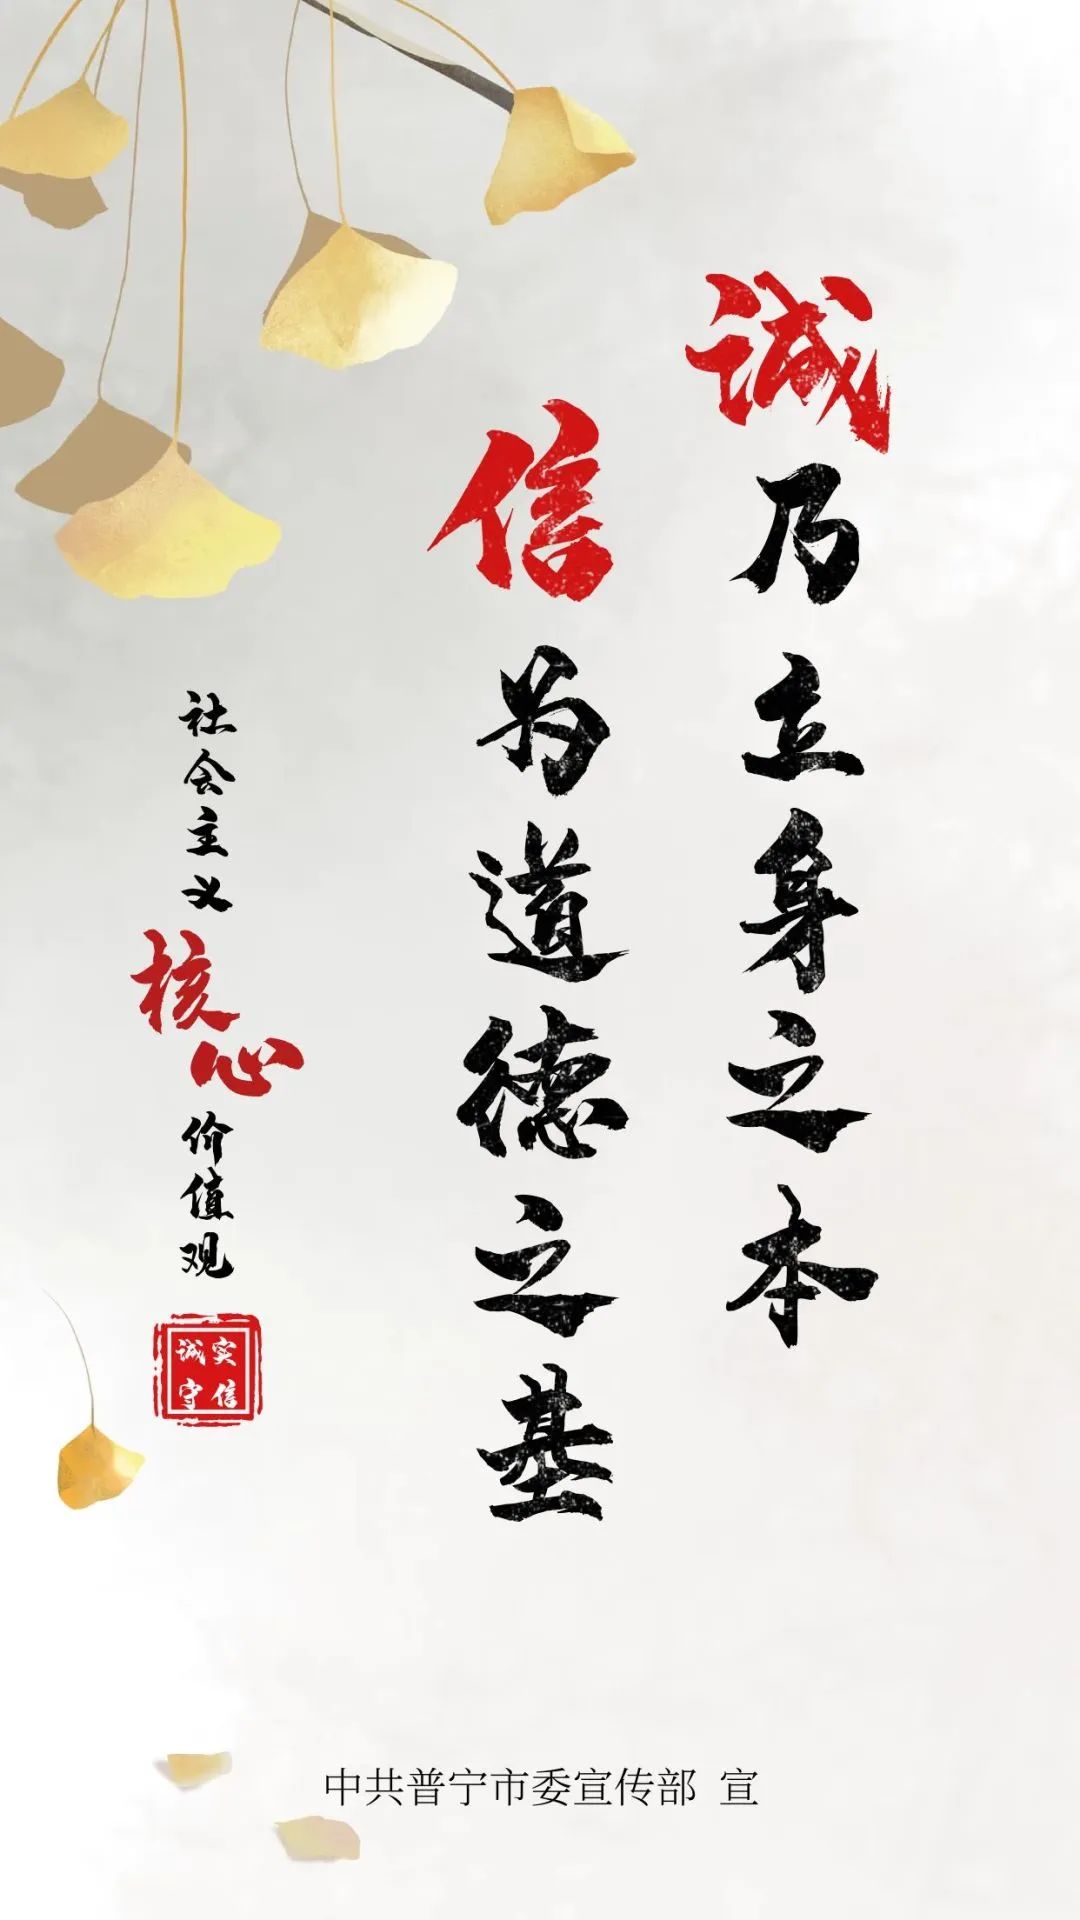 诚乃立身之本
信为道德之基
社会主义核心价值观
诚实守信
中共普宁市委宣传部 宣